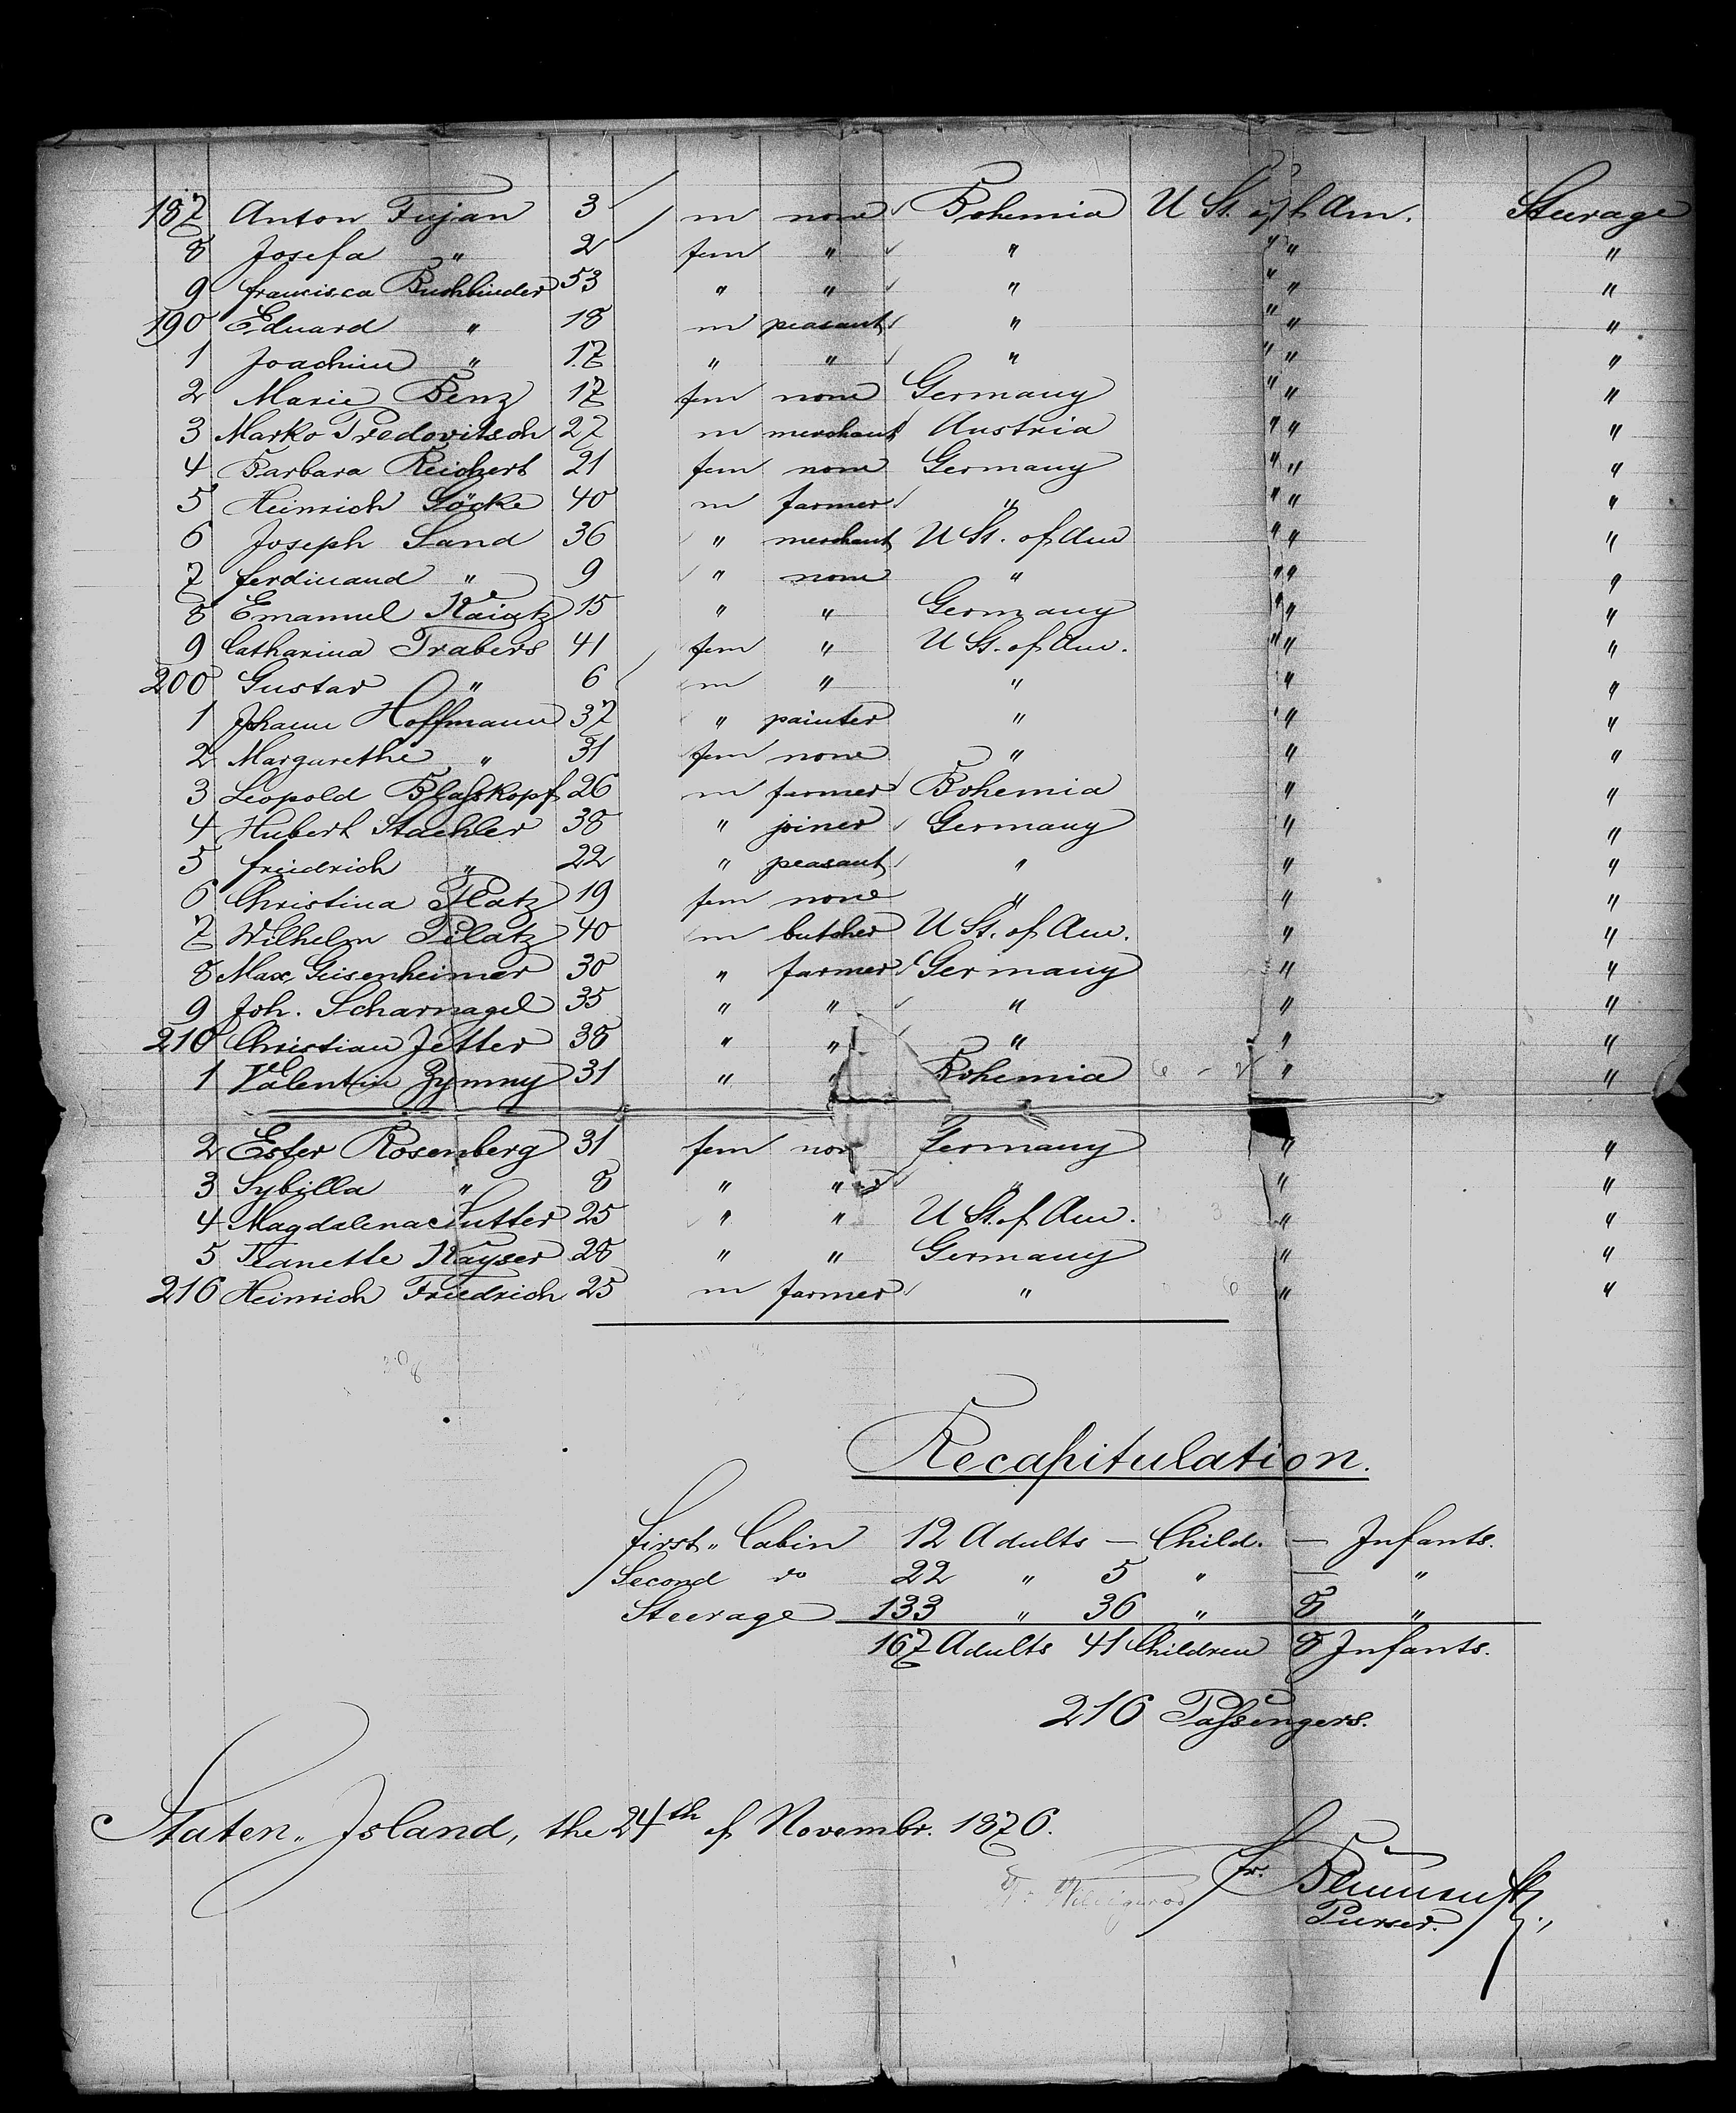 187 Anton Fujan 3 m none Bohemia U St. of Am. Steerage
8 Josefa " 2 fem " " " " "
9 Francisca Buchbinder 53 " " " " " "
190 Eduard " 18 m peasant " " " "
1 Joachim " 17 " " " " " "
2 Marie Benz 17 fem none Germany " " "
3 Marko Predovitsch 27 m merchant Austria " " "
4 Barbara Reichert 21 fem none Germany " " "
5 Heinrich Göcke 40 m farmer " " " "
6 Joseph Sand 36 " merchant U St. of Am " " "
7 Ferdinand " 9 " none " " " "
8 Emanuel 15 " " Germany " " "
9 Catharina Trabers 41 fem " U St. of Am. " " "
200 Gustav " 6 m " " " " "
1 Johann Hoffmann 37 " painter " " " "
2 Margarethe " 31 fem none " " "
3 Leopold Blaßkopf 26 m farmer Bohemia " "
4 Hubert Staehler 38 " joiner Germany " "
5 Friedrich " 22 " peasant " " "
6 Christina Platz 19 fem none " " "
7 Wilhelm Pilatz 40 m butcher U St. of Am. " "
8 Max Geisenheimer 30 " farmer Germany " "
9 Joh. Scharnagel 35 " " " " "
210 Christian Jetter 38 " " " " "
1 Valentin Zymny 31 " " Bohemia " "
2 Ester Rosenberg 31 fem non Germany " "
3 Sybilla " 8 " " " " "
4 Magdalena Sutter 25 " " U St. of Am. " "
5 Nanette Kayser 28 " " Germany " "
216 Heinrich Friedrich 25 m farmer " " "
Recapitulation.
First" Cabin 12 Adults — Child. — Infants.
Second do 22 " 5 " — "
Steerage 133 " 36 " 8 "
167 Adults 41 Children 8 Infants.
216 Paßengers.
Staten" Island, the 24th of Novembr. 1876.
Fr.
Purser.